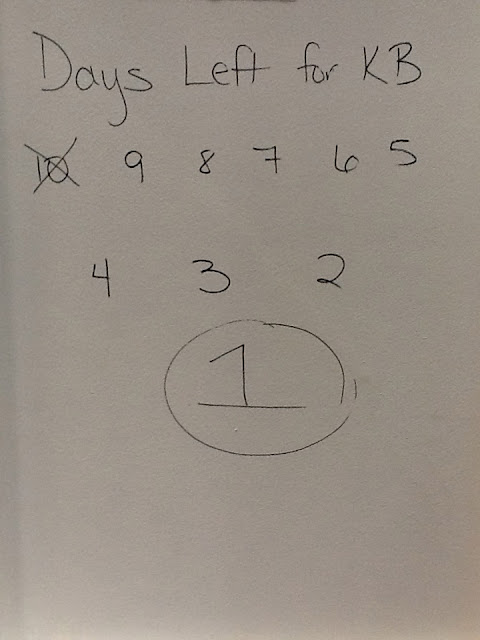 Days Left for KB
10 9 8 7 6 5
4 3 2
1